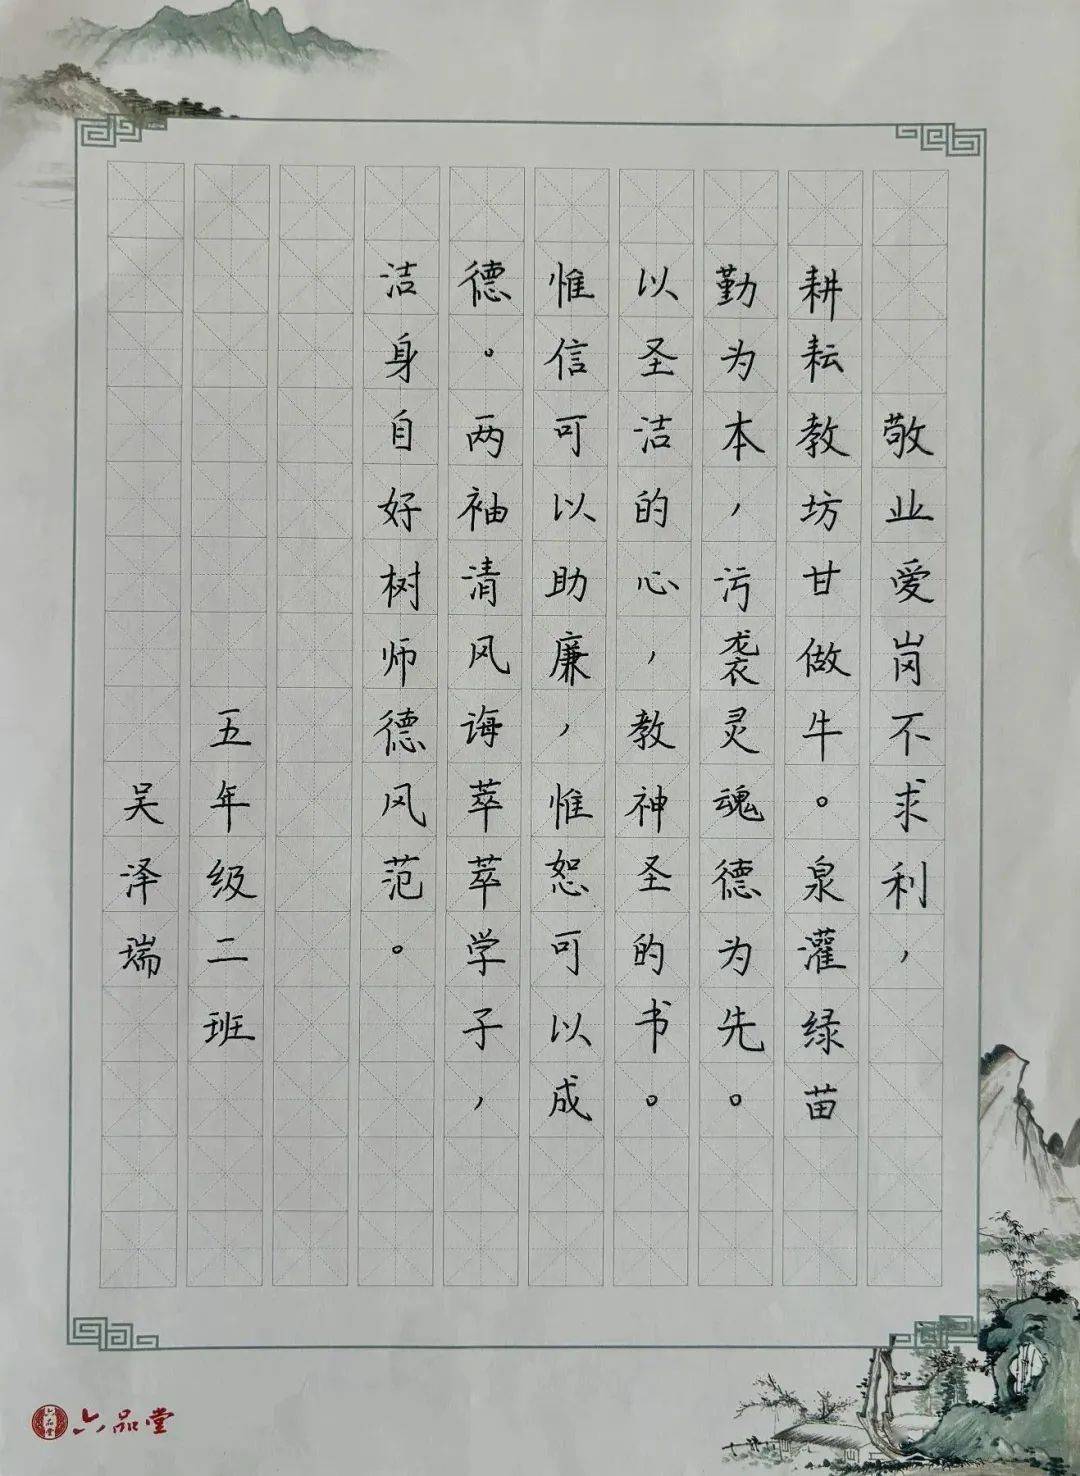 敬业爱岗不求利，
耕耘教坊甘做牛。泉灌绿苗
勤为本，污袭灵魂德为先。
以圣洁的心，教神圣的书。
惟信可以助廉，惟恕可以成
德。两袖清风诲萃萃学子，
洁身自好树师德风范。
五年级二班
吴泽瑞
六品堂
六品堂